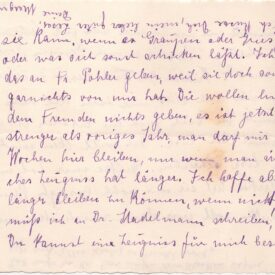 Ich küsse Dich mein lieber guter Leser
Deine
sie kann, wenn es Graupen oder Gries
oder was sich sonst schicken läßt. Ich
das an Fr. Pohler geben, weil sie doch so
garnichts von uns hat. Die wollen
dem Fremden nichts geben, es ist jetzt
strenger als voriges Jahr, man darf nur
Wochen hier bleiben, nur wenn man
ches Zeugniss hat länger. Ich hoffe
länger bleiben zu können, wenn nicht
muß ich an Dr. Stadelmann schreiben,
Du kannst ein Zeugniss für mich bes